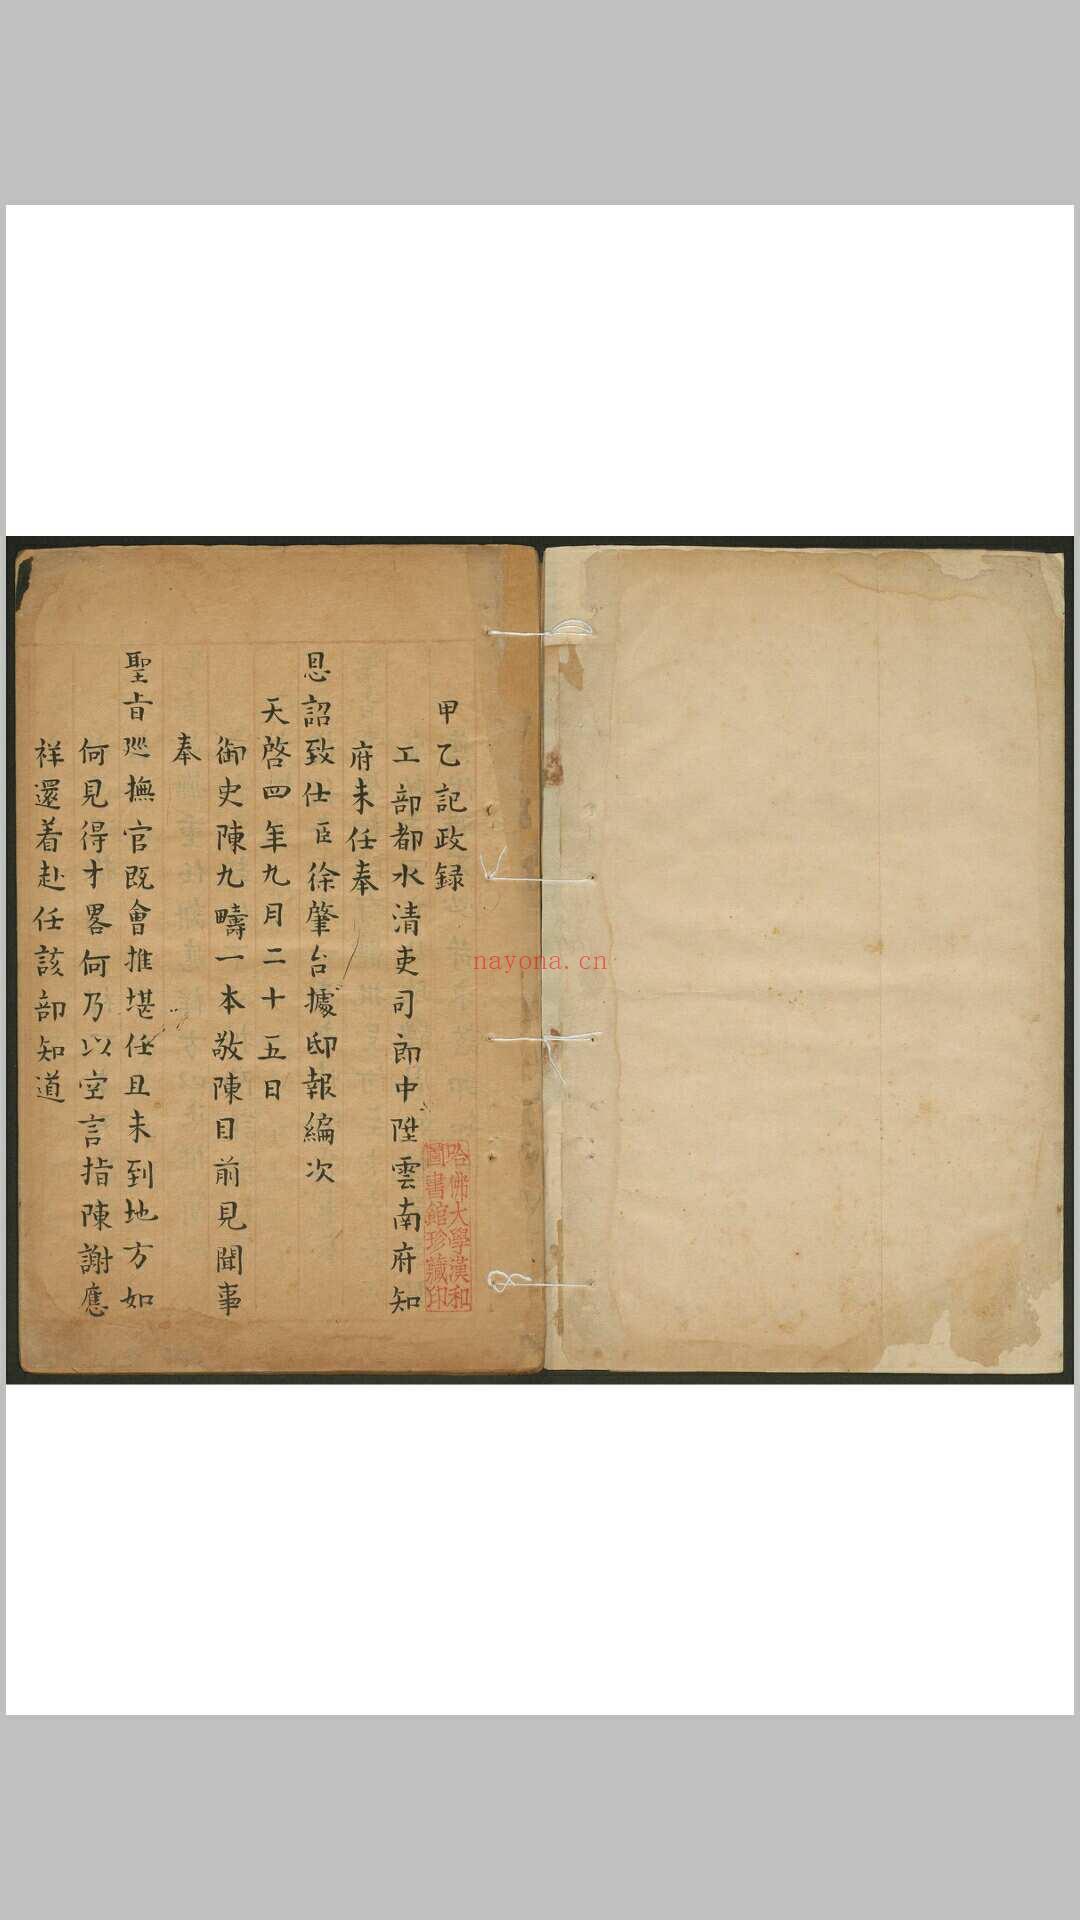 甲乙記政録
工部都水清吏司郎中陞雲南府知
府未任奉
恩詔致仕臣徐肇台據邸報編次
天啓四年九月二十五日
御史陳九疇一本敬陳目前見聞事
奉
聖旨廵撫官既會推堪任且未到地方如
何見得才畧何乃以空言指陳謝應
祥還着赴任該部知道
哈佛大學漢和
圖書館珍藏印
nayona.cn